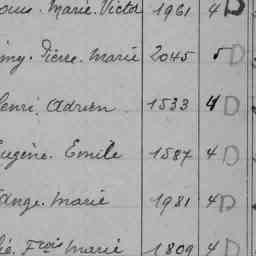 Marie. Victor 1961 4 D
Pierre. Marie 2045 5 D
Henri. Adrien 1533 4 D
Eugène. Emile 1587 4 D
Ange. Marie 1981 4 D
Frois Marie 1809 4 D